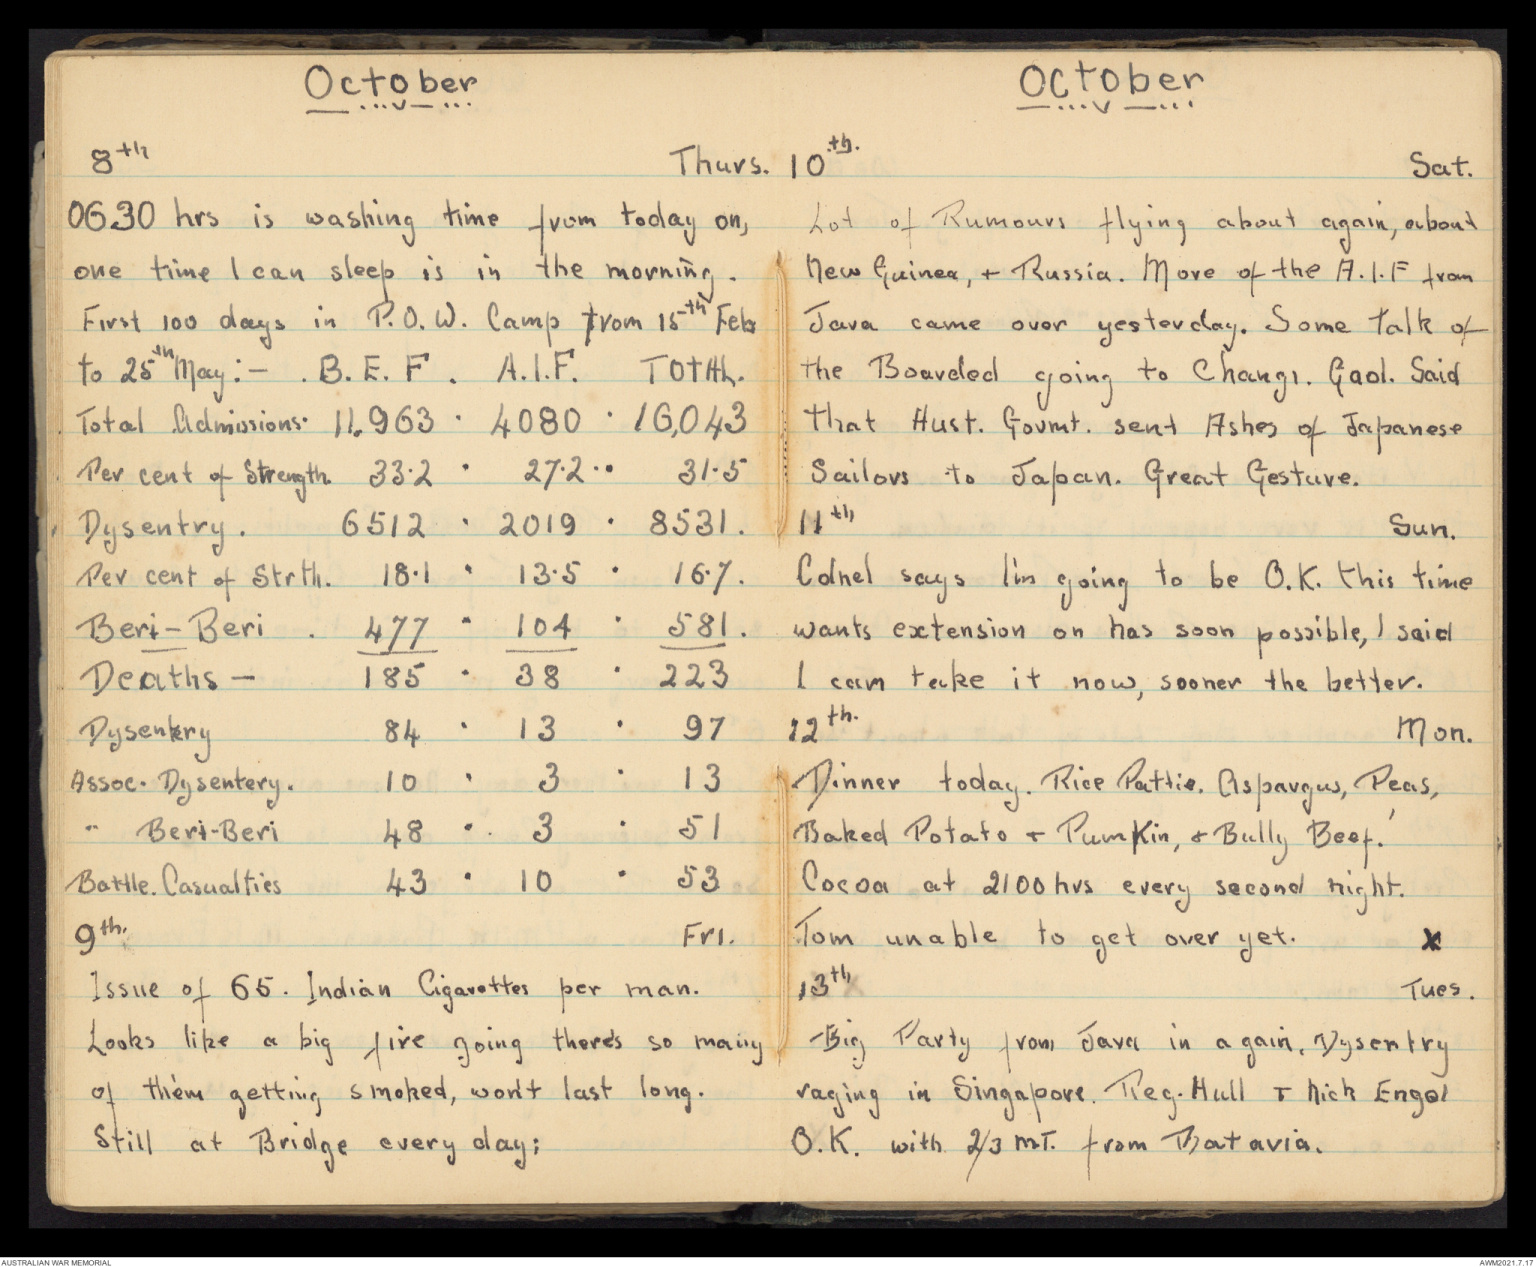 October
8th Thurs.
0630 hrs is washing time from today on,
one time I can sleep is in the morning.
First 100 days in P.O.W. Camp from 15th Feb
to 25th May:- . B. E. F . A.I.F. TOTAL.
Total Admissions. 11,963 . 4080 . 16,043
Per cent of Strength. 33.2 . 27.2.. 31.5
Dysentry. 6512 . 2019 . 8531.
Per cent of Strth. 18.1 . 13.5 . 16.7.
Beri-Beri . 477 . 104 . 581.
Deaths - 185 . 38 . 223
Dysentry 84 . 13 . 97
Assoc. Dysentery. 10 . 3 . 13
" Beri-Beri 48 . . 3 . 51
Battle. Casualties 43 . 10 . 53
9th. Fri.
Issue of 65. Indian Cigarettes per man.
Looks like a big fire going there's so many
of them getting smoked, won't last long.
Still at Bridge every day;
October
10th. Sat.
Lot of Rumours flying about again, about
New Guinea, + Russia. More of the A.I.F from
Java came over yesterday. Some talk of
the Boarded going to Changi. Gaol. Said
that Aust. Govmt. sent Ashes of Japanese
Sailors to Japan. Great Gesture.
11th Sun.
Colnel says I'm going to be O.K. this time
wants extension on has soon possible, I said
I can take it now, sooner the better.
12th. Mon.
Dinner today. Rice Pattie. Aspargus, Peas,
Baked Potato + Pumkin, + Bully Beef.'
Cocoa at 2100 hrs every second night.
Tom unable to get over yet. x
13th Tues.
Big Party from Java in again. Dysentry
raging in Singapore. Reg. Hull + Nick Engel
O.K. with 2/3 MT. from Batavia.
AUSTRALIAN WAR MEMORIAL
AWM2021.7.17